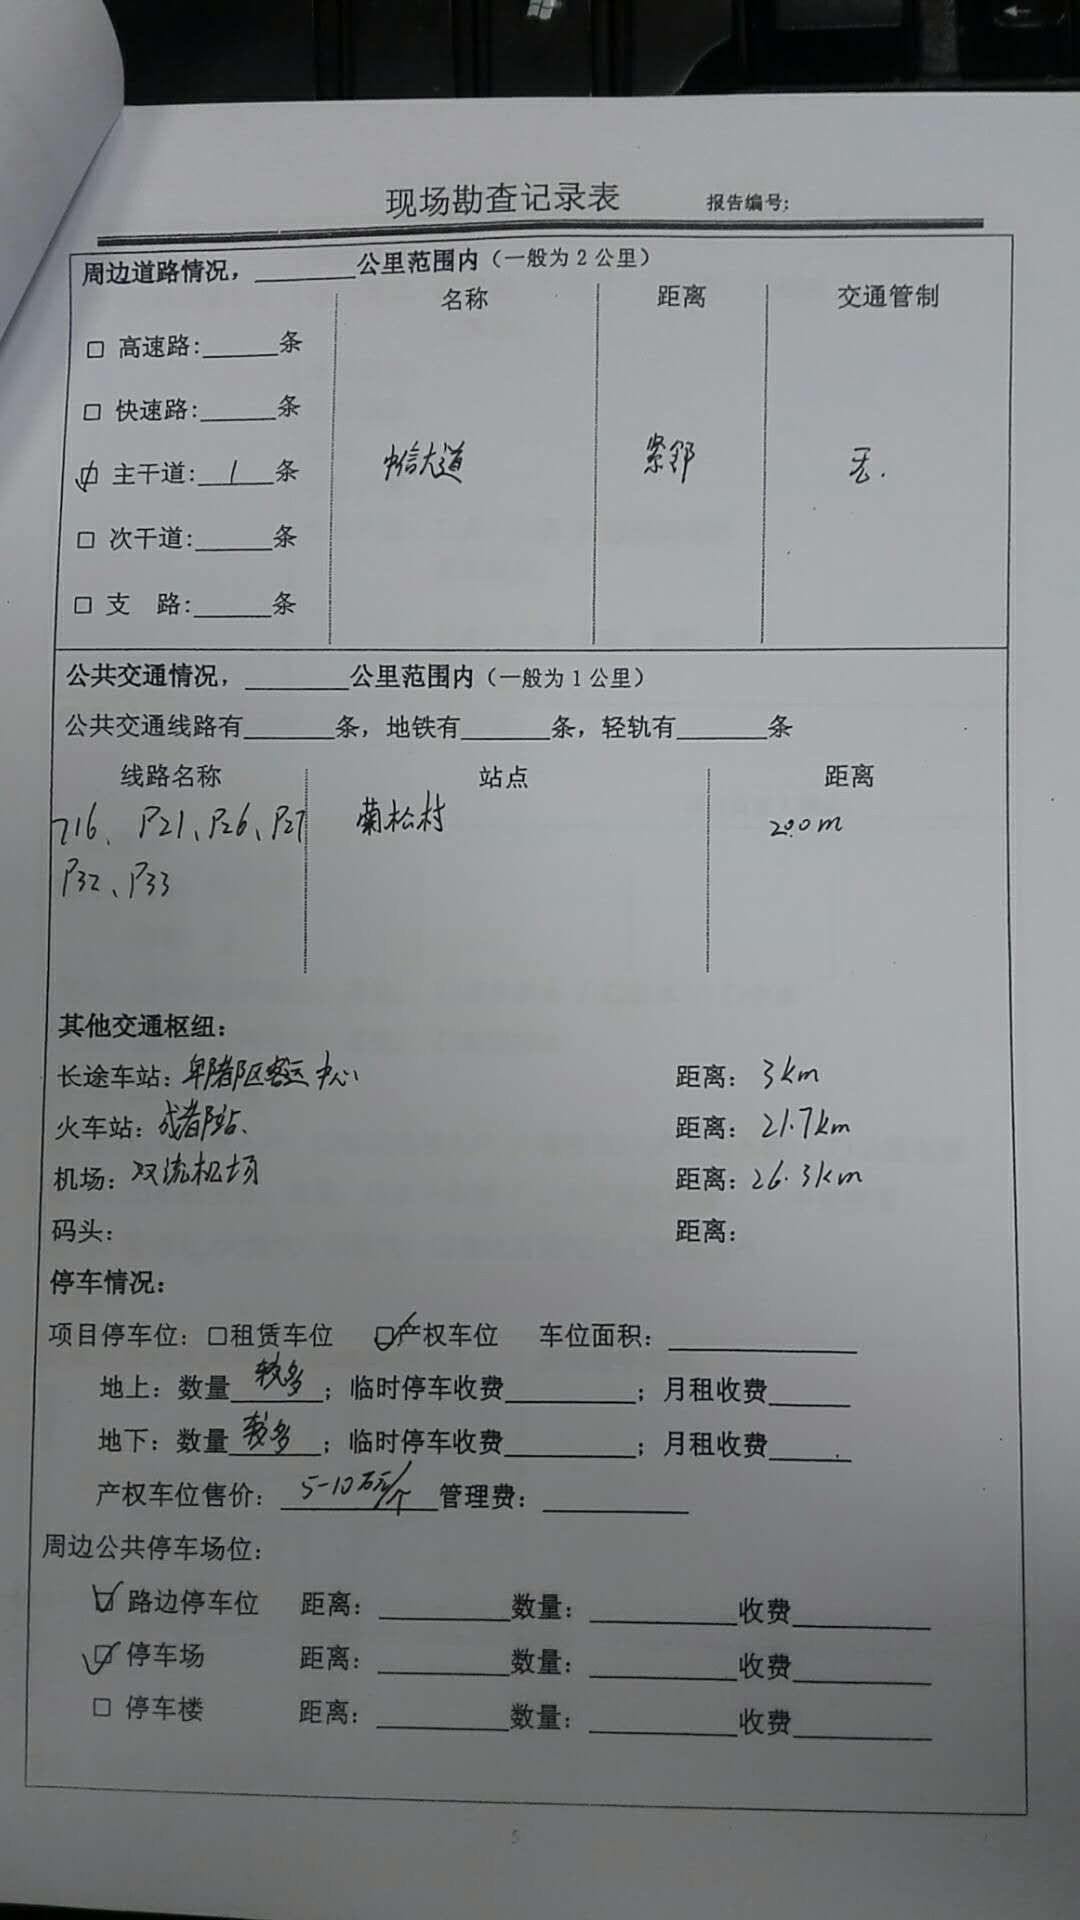 现场勘查记录表 报告编号:
周边道路情况，________公里范围内（一般为2公里）
名称 距离 交通管制
□ 高速路:______条
□ 快速路:______条
☑ 主干道:__1__条 中信大道 紧邻 无.
□ 次干道:______条
□ 支 路:______条
公共交通情况，________公里范围内（一般为1公里）
公共交通线路有_______条，地铁有_______条，轻轨有_______条
线路名称 站点 距离
716、P21、P26、P27 菊松村 200m
P32、P33
其他交通枢纽：
长途车站：郫都区客运中心 距离：3km
火车站：成都站、 距离：21.7km
机场：双流机场 距离：26.3km
码头： 距离：
停车情况：
项目停车位：□租赁车位 ☑产权车位 车位面积：______________
地上：数量__较多__；临时停车收费__________；月租收费______
地下：数量__较多__；临时停车收费__________；月租收费______
产权车位售价：__5-10万元/个__管理费：___________
周边公共停车场位：
☑ 路边停车位 距离：__________数量：___________收费__________
☑ 停车场 距离：__________数量：___________收费__________
□ 停车楼 距离：__________数量：___________收费__________
5